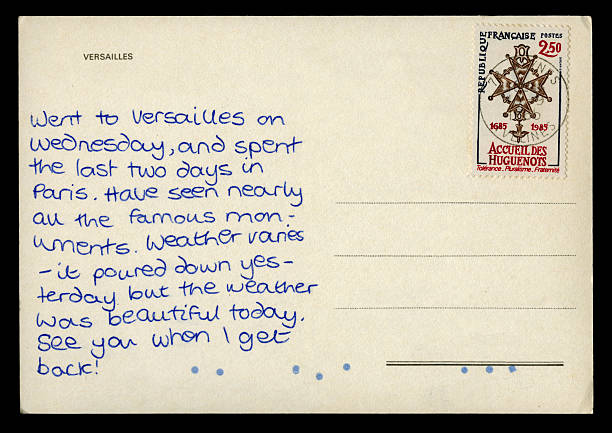 VERSAILLES
REPUBLIQUE FRANÇAISE POSTES
2,50
1685 1985
ACCUEIL DES
HUGUENOTS
Tolérance, Pluralisme, Fraternité
Went to Versailles on
Wednesday, and spent
the last two days in
Paris. Have seen nearly
all the famous mon-
uments. Weather varies
- it poured down yes-
terday but the weather
was beautiful today.
See you when I get
back!